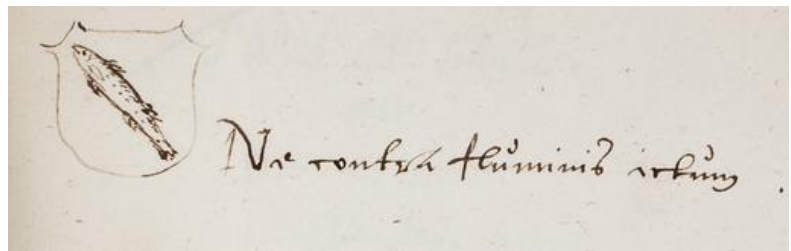 Ne contra fluminis ictum .